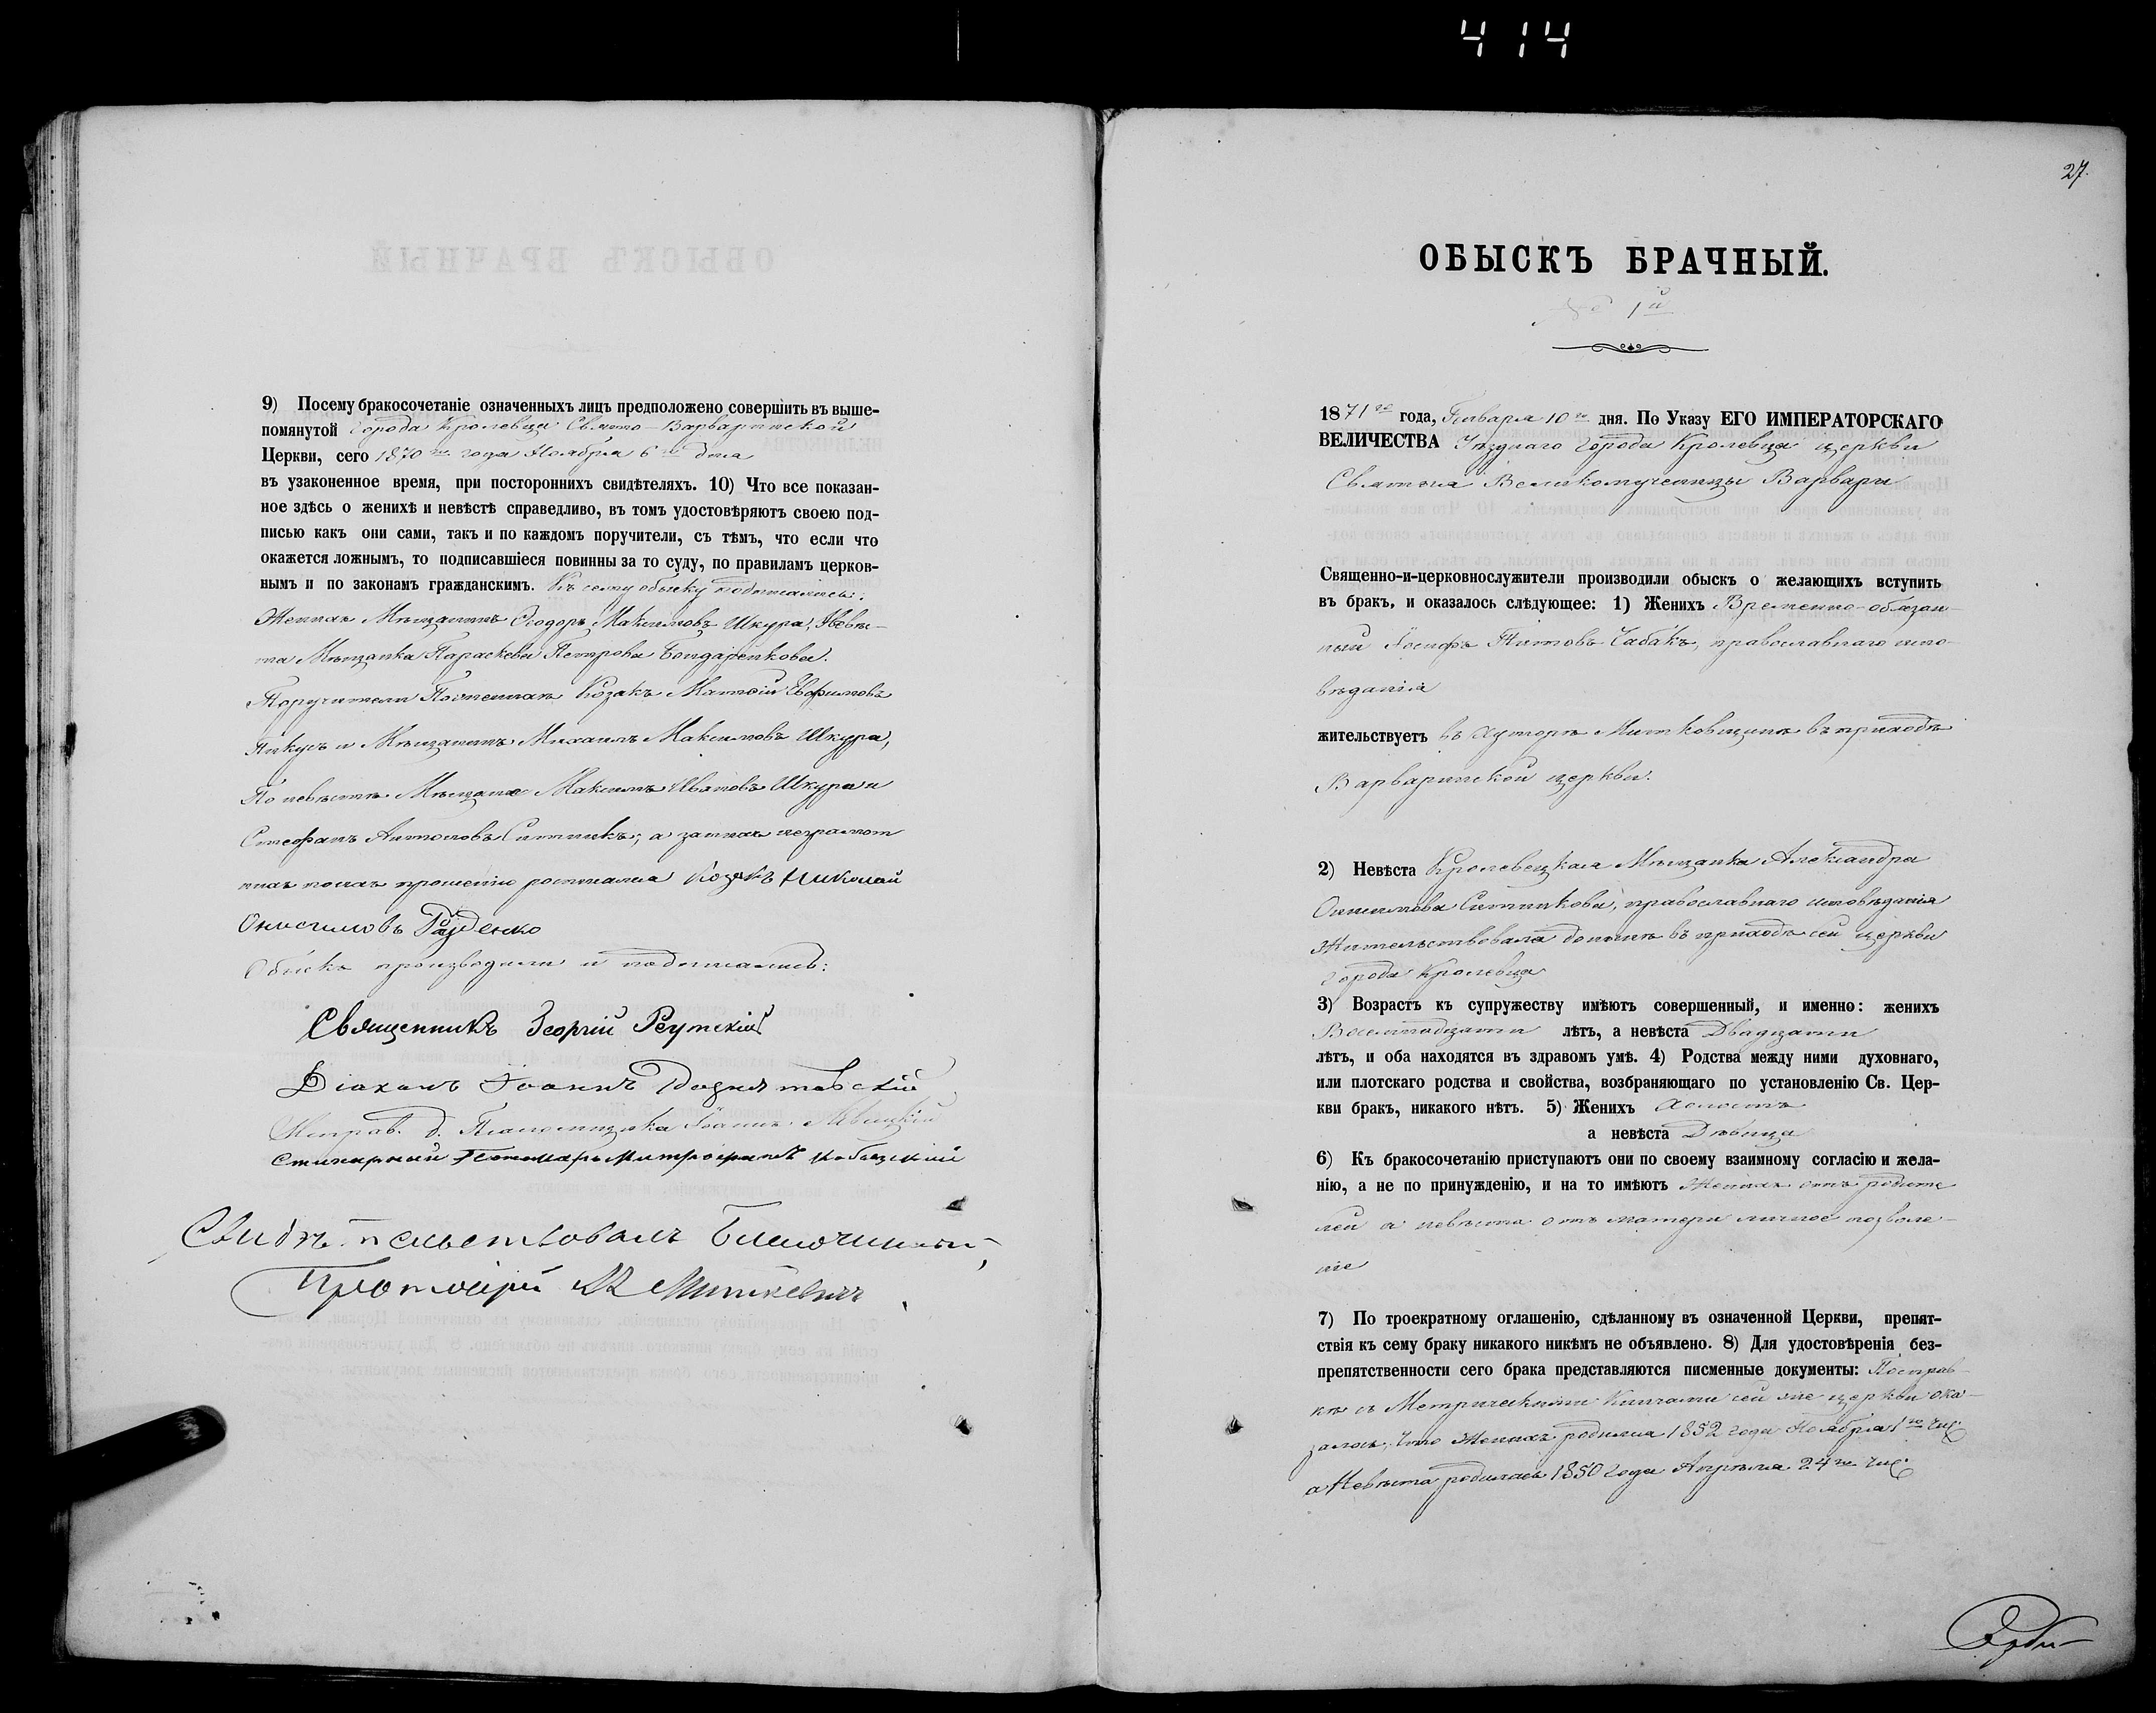 414
9) Посему бракосочетаніе означенныхъ лицъ предположено совершить въ выше-
помянутой города Кролевца Свято-Варваринской
Церкви, сего 1870 го года Ноября 6 го дня
въ узаконенное время, при постороннихъ свидѣтеляхъ. 10) Что все показан-
ное здѣсь о женихѣ и невѣстѣ справедливо, въ томъ удостовѣряютъ своею под-
писью какъ они сами, такъ и по каждомъ поручители, съ тѣмъ, что если что
окажется ложнымъ, то подписавшіеся повинны за то суду, по правиламъ церков-
нымъ и по законамъ гражданскимъ. Къ сему обыску подписались:
Женихъ Мѣщанинъ Ѳеодоръ Максимовъ Шкура, Невѣ-
ста Мѣщанка Параскева Петрова Бондаренкова.
Поручители По женихѣ Козакъ Матѳій Евфимовъ
и Мѣщанинъ Михаилъ Максимовъ Шкура,
По невѣстѣ Мѣщане Максимъ Ивановъ Шкура и
Стефанъ Антоновъ Ситникъ; а за нихъ неграмот
ныхъ по ихъ прошенію росписался Козакъ Николай
Онисимовъ Гайденко
Обыскъ производили и подписались:
Священникъ Георгій Реутскій
Діаконъ Іоаннъ
Исправ. д. Псаломщика Іоаннъ
Пономарь Митрофанъ
Свидѣтельствовалъ Благочинный,
Протоіерей
27.
ОБЫСКЪ БРАЧНЫЙ.
№ 1й
1871 го года, Января 10 го дня. По Указу ЕГО ИМПЕРАТОРСКАГО
ВЕЛИЧЕСТВА Уѣзднаго города Кролевца церкви
Святыя Великомученицы Варвары
Священно-и-церковнослужители производили обыскъ о желающихъ вступить
въ бракъ, и оказалось слѣдующее: 1) Женихъ Временно-обязан-
ный Іосифъ Титовъ Чабакъ, православнаго испо-
вѣданія
жительствуетъ въ Хуторѣ Митковщинѣ въ приходѣ
Варваринской церкви.
2) Невѣста Кролевецкая Мѣщанка Александра
Онисимова Ситникова, православнаго исповѣданія
Жительствовала донынѣ въ приходѣ сей церкви
города Кролевца
3) Возрастъ къ супружеству имѣютъ совершенный, и именно: женихъ
Восемнадцати лѣтъ, а невѣста Двадцати
лѣтъ, и оба находятся въ здравомъ умѣ. 4) Родства между ними духовнаго,
или плотскаго родства и свойства, возбраняющаго по установленію Св. Цер-
кви бракъ, никакого нѣтъ. 5) Женихъ Холостъ
а невѣста Дѣвица
6) Къ бракосочетанію приступаютъ они по своему взаимному согласію и жела-
нію, а не по принужденію, и на то имѣютъ Женихъ отъ родите
лей а невѣста отъ матери личное позволе-
ніе
7) По троекратному оглашенію, сдѣланному въ означенной Церкви, препят-
ствія къ сему браку никакого никѣмъ не объявлено. 8) Для удостовѣренія без-
препятственности сего брака представляются писменные документы: По справ-
кѣ съ Метрическими Книгами сей же церкви ока-
залось, что Женихъ родился 1852 года Ноября 1 го чис.
а Невѣста родилась 1850 года Апрѣля 24 го чис.